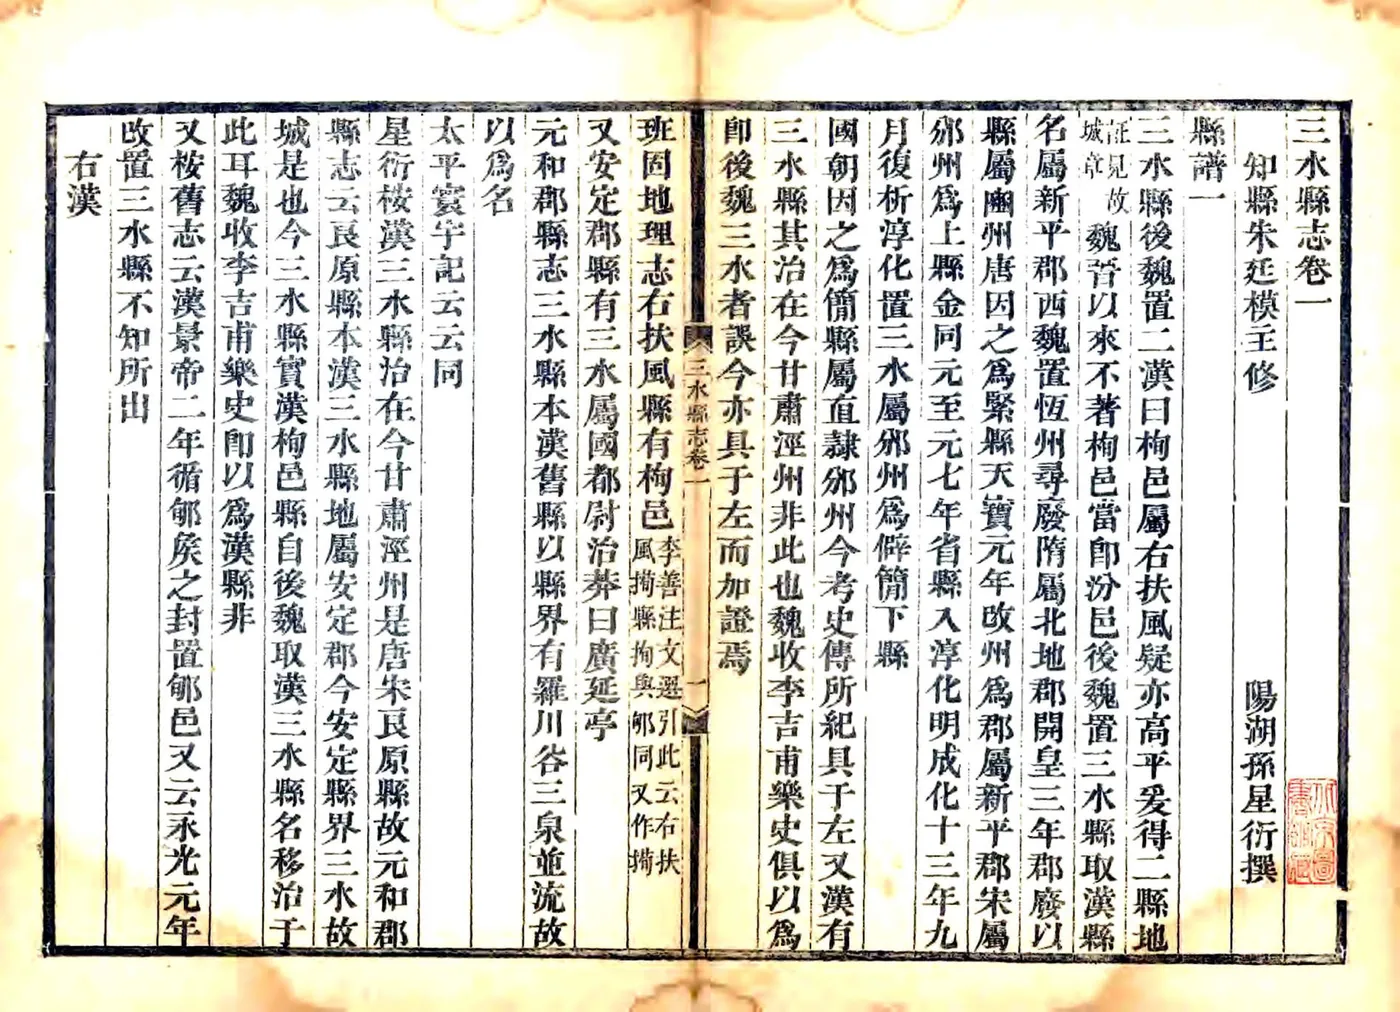 三水縣志卷一
知縣朱廷模主修
陽湖孫星衍撰
縣譜一
三水縣後魏置二漢曰栒邑屬右扶風疑亦高平爰得二縣地
証見故城章
魏晉以來不著栒邑當卽汾邑後魏置三水縣取漢縣
名屬新平郡西魏置恆州尋廢隋屬北地郡開皇三年郡廢以
縣屬豳州唐因之爲緊縣天寶元年改州爲郡屬新平郡宋屬
邠州爲上縣金同元至元七年省縣入淳化明成化十三年九
月復析淳化置三水屬邠州爲僻簡下縣
國朝因之爲簡縣屬直隸邠州今考史傳所紀具于左又漢有
三水縣其治在今甘肅涇州非此也魏收李吉甫樂史俱以爲
卽後魏三水者誤今亦具于左而加證焉
三水縣志卷一
一
班固地理志右扶風縣有栒邑
李善注文選引此云右扶
風㨌縣拘與郇同又作㨌
又安定郡縣有三水屬國都尉治莽曰廣延亭
元和郡縣志三水縣本漢舊縣以縣界有羅川谷三泉並流故
以爲名
太平寰宇記云云同
星衍桉漢三水縣治在今甘肅涇州是唐宋良原縣故元和郡
縣志云良原縣本漢三水縣地屬安定郡今安定縣界三水故
城是也今三水縣實漢栒邑縣自後魏取漢三水縣名移治于
此耳魏收李吉甫樂史卽以爲漢縣非
又桉舊志云漢景帝二年循郇矦之封置郇邑又云永光元年
改置三水縣不知所出
右漢